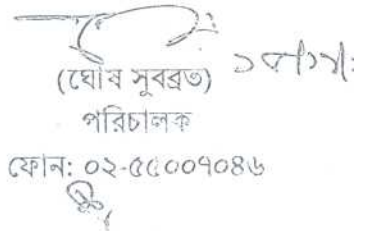 (ঘোষ সুবব্রত)
পরিচালক
ফোন: ০২-৫৫০০৭০৪৬